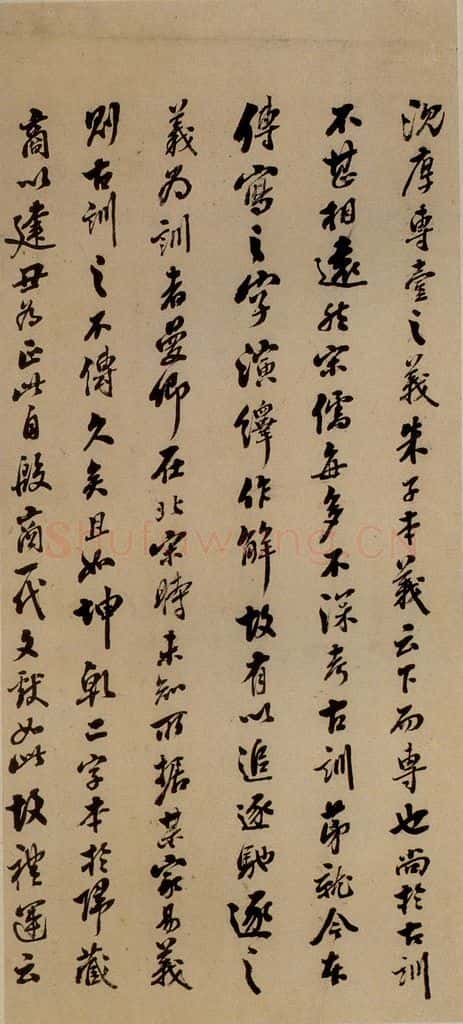 沉厚專壹之義朱子本義云下而專也尚於古訓
不甚相遠然宋儒每多不深考古訓苐就今本
傳寫之字演繹作解故有以追逐馳逐之
義為訓者曼卿在北宋時未知所據某家易義
則古訓之不傳久矣且如坤乾二字本於歸藏
商以建丑為正此自殷商一代文獻如此故禮運云
Shufawang.CN